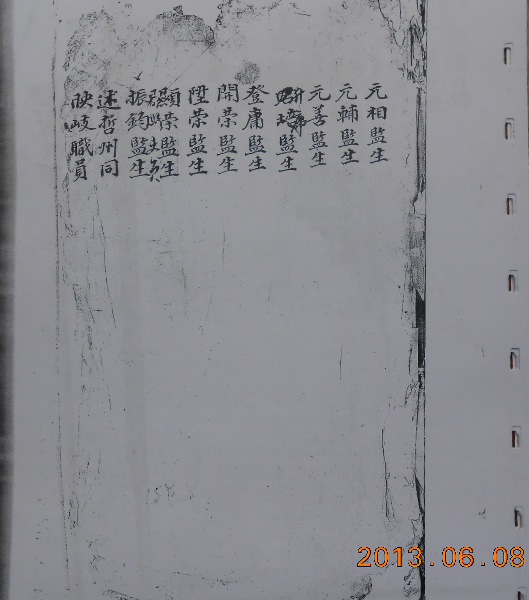 元相監生
元輔監生
元善監生
監生
登庸監生
開荣監生
陞荣監生
顯荣監生
振鈞監生
述哲州同
映岐職員
2013.06.08